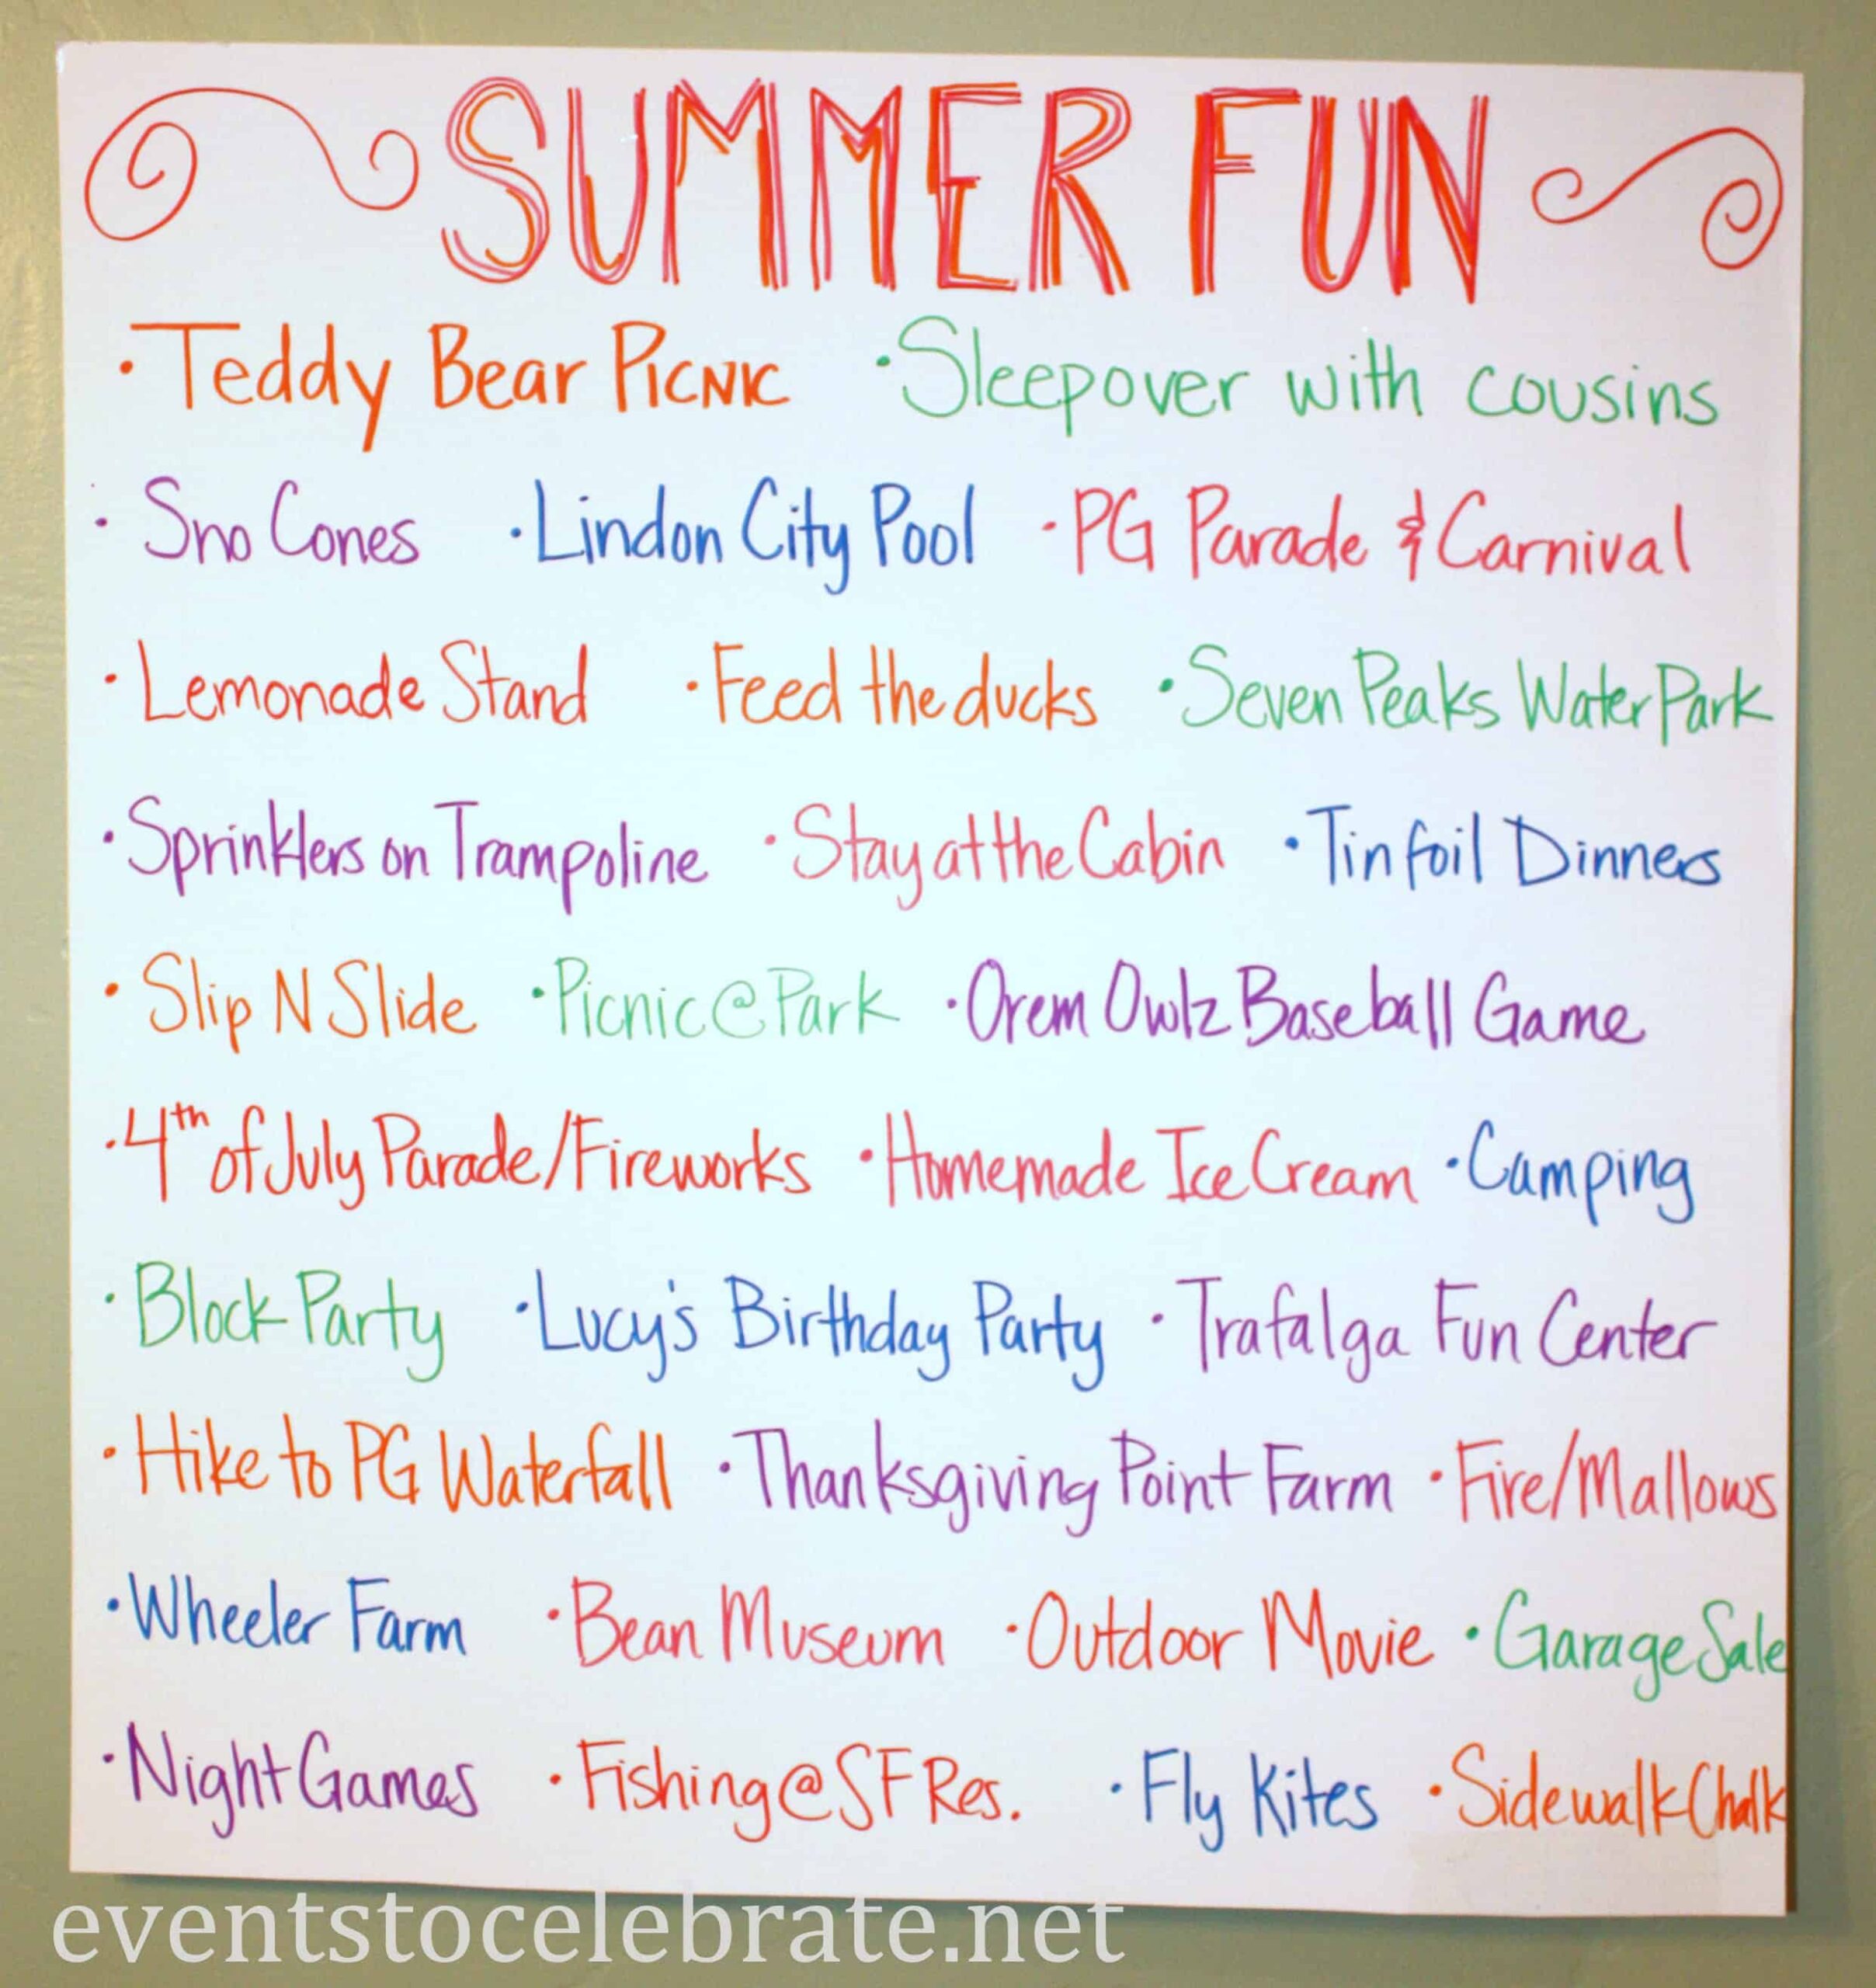 SUMMER FUN
• Teddy Bear Picnic • Sleepover with cousins
• Sno Cones • Lindon City Pool • PG Parade & Carnival
• Lemonade Stand • Feed the ducks • Seven Peaks Water Park
• Sprinklers on Trampoline • Stay at the Cabin • Tin foil Dinners
• Slip N Slide • Picnic @ Park • Orem Owlz Baseball Game
• 4th of July Parade/Fireworks • Homemade Ice Cream • Camping
• Block Party • Lucy's Birthday Party • Trafalga Fun Center
• Hike to PG Waterfall • Thanksgiving Point Farm • Fire/Mallows
• Wheeler Farm • Bean Museum • Outdoor Movie • Garage Sale
• Night Games • Fishing @ SF Res. • Fly Kites • Sidewalk Chalk
eventstocelebrate.net